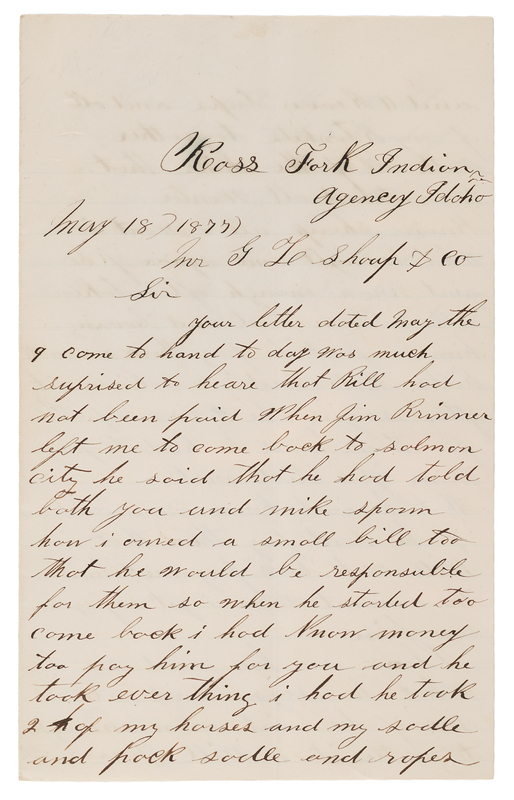 Ross Fork Indian
Agencey Idaho
May 18) 1877)
Mr G L Shoup & Co
Sir
your letter dated May the
9 come to hand to day was much
suprised to heare that Bill had
not been paid When Jim Brinner
left me to come back to salmon
city he said that he had told
both you and mike sponn
how i owed a small bill too
that he would be responsuble
for them so when he started too
come back i had know money
too pay him for you and he
took ever thing i had he took
2 of my horses and my sadle
and pack sadle and ropes